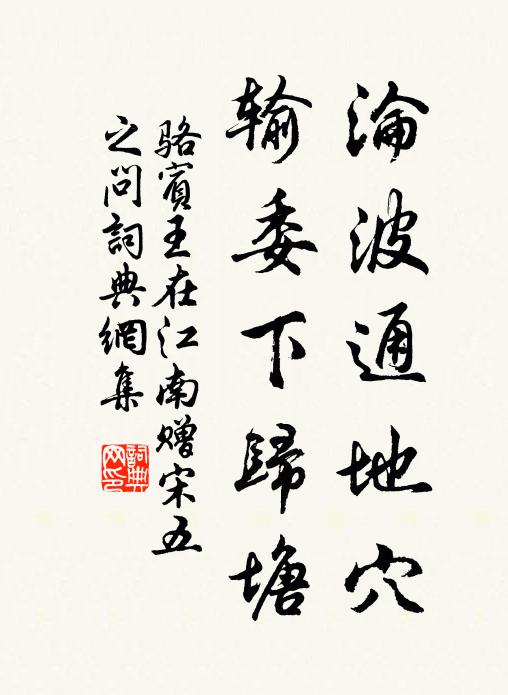 淪波通地穴
輸委下歸塘
駱賓王在江南贈宋五
之問詞典網集
詞典
网印